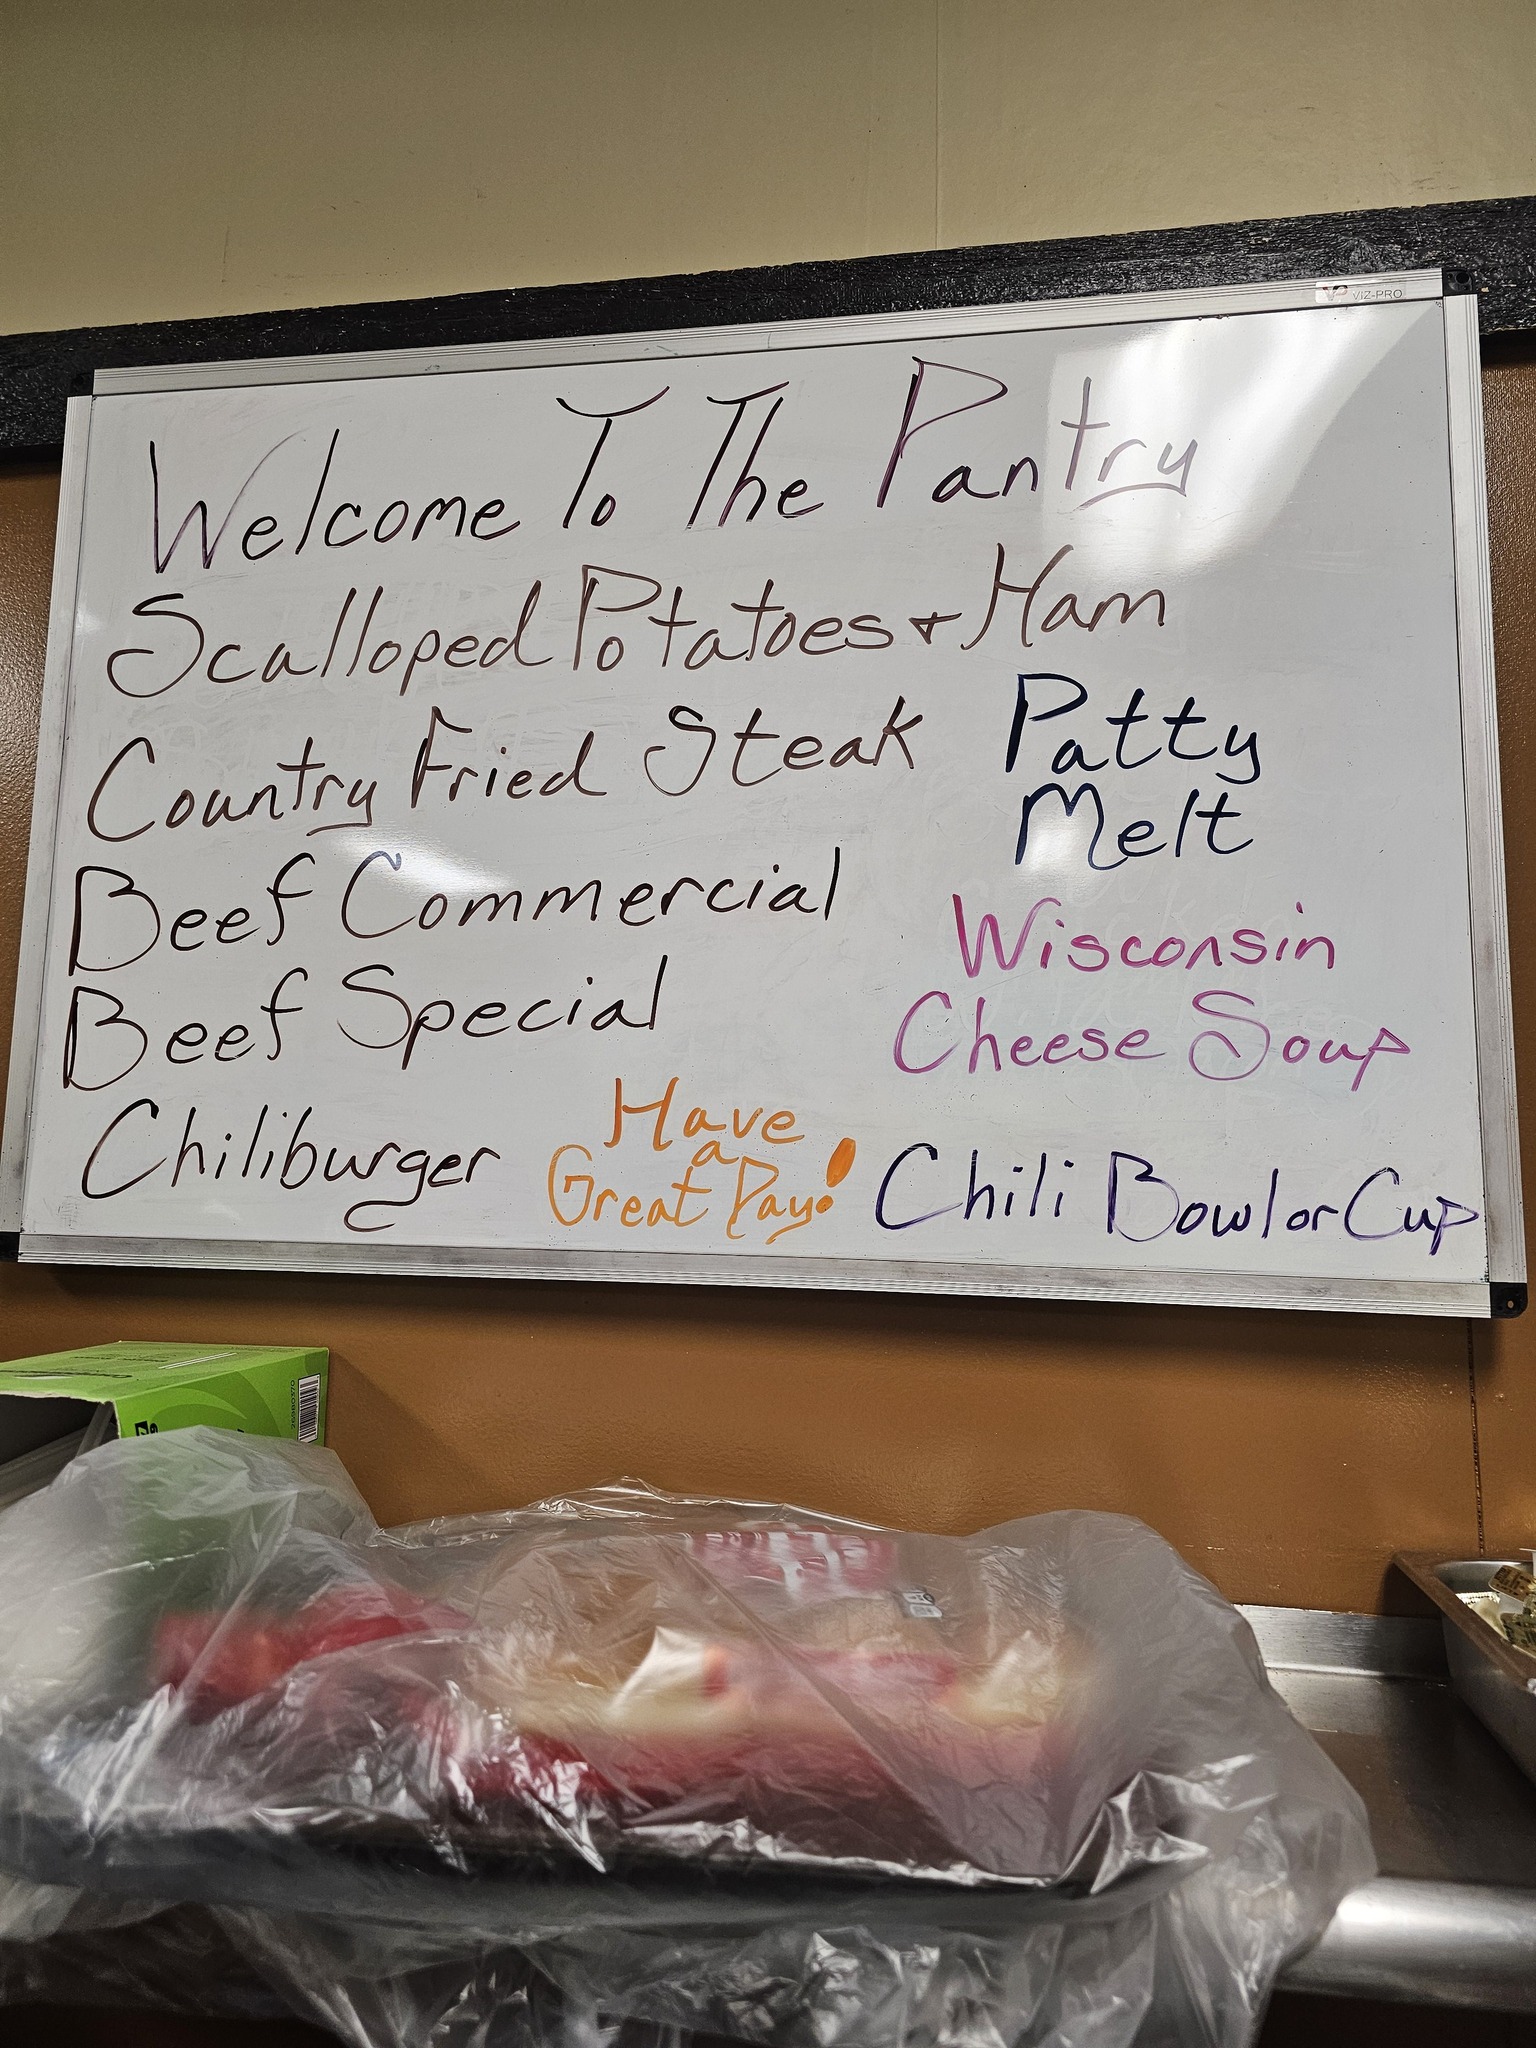 VIZ-PRO
Welcome To The Pantry
Scalloped Potatoes + Ham
Country Fried Steak
Patty
Melt
Beef Commercial
Wisconsin
Beef Special
Cheese Soup
Chiliburger
Have
a
Great Day!
Chili Bowl or Cup